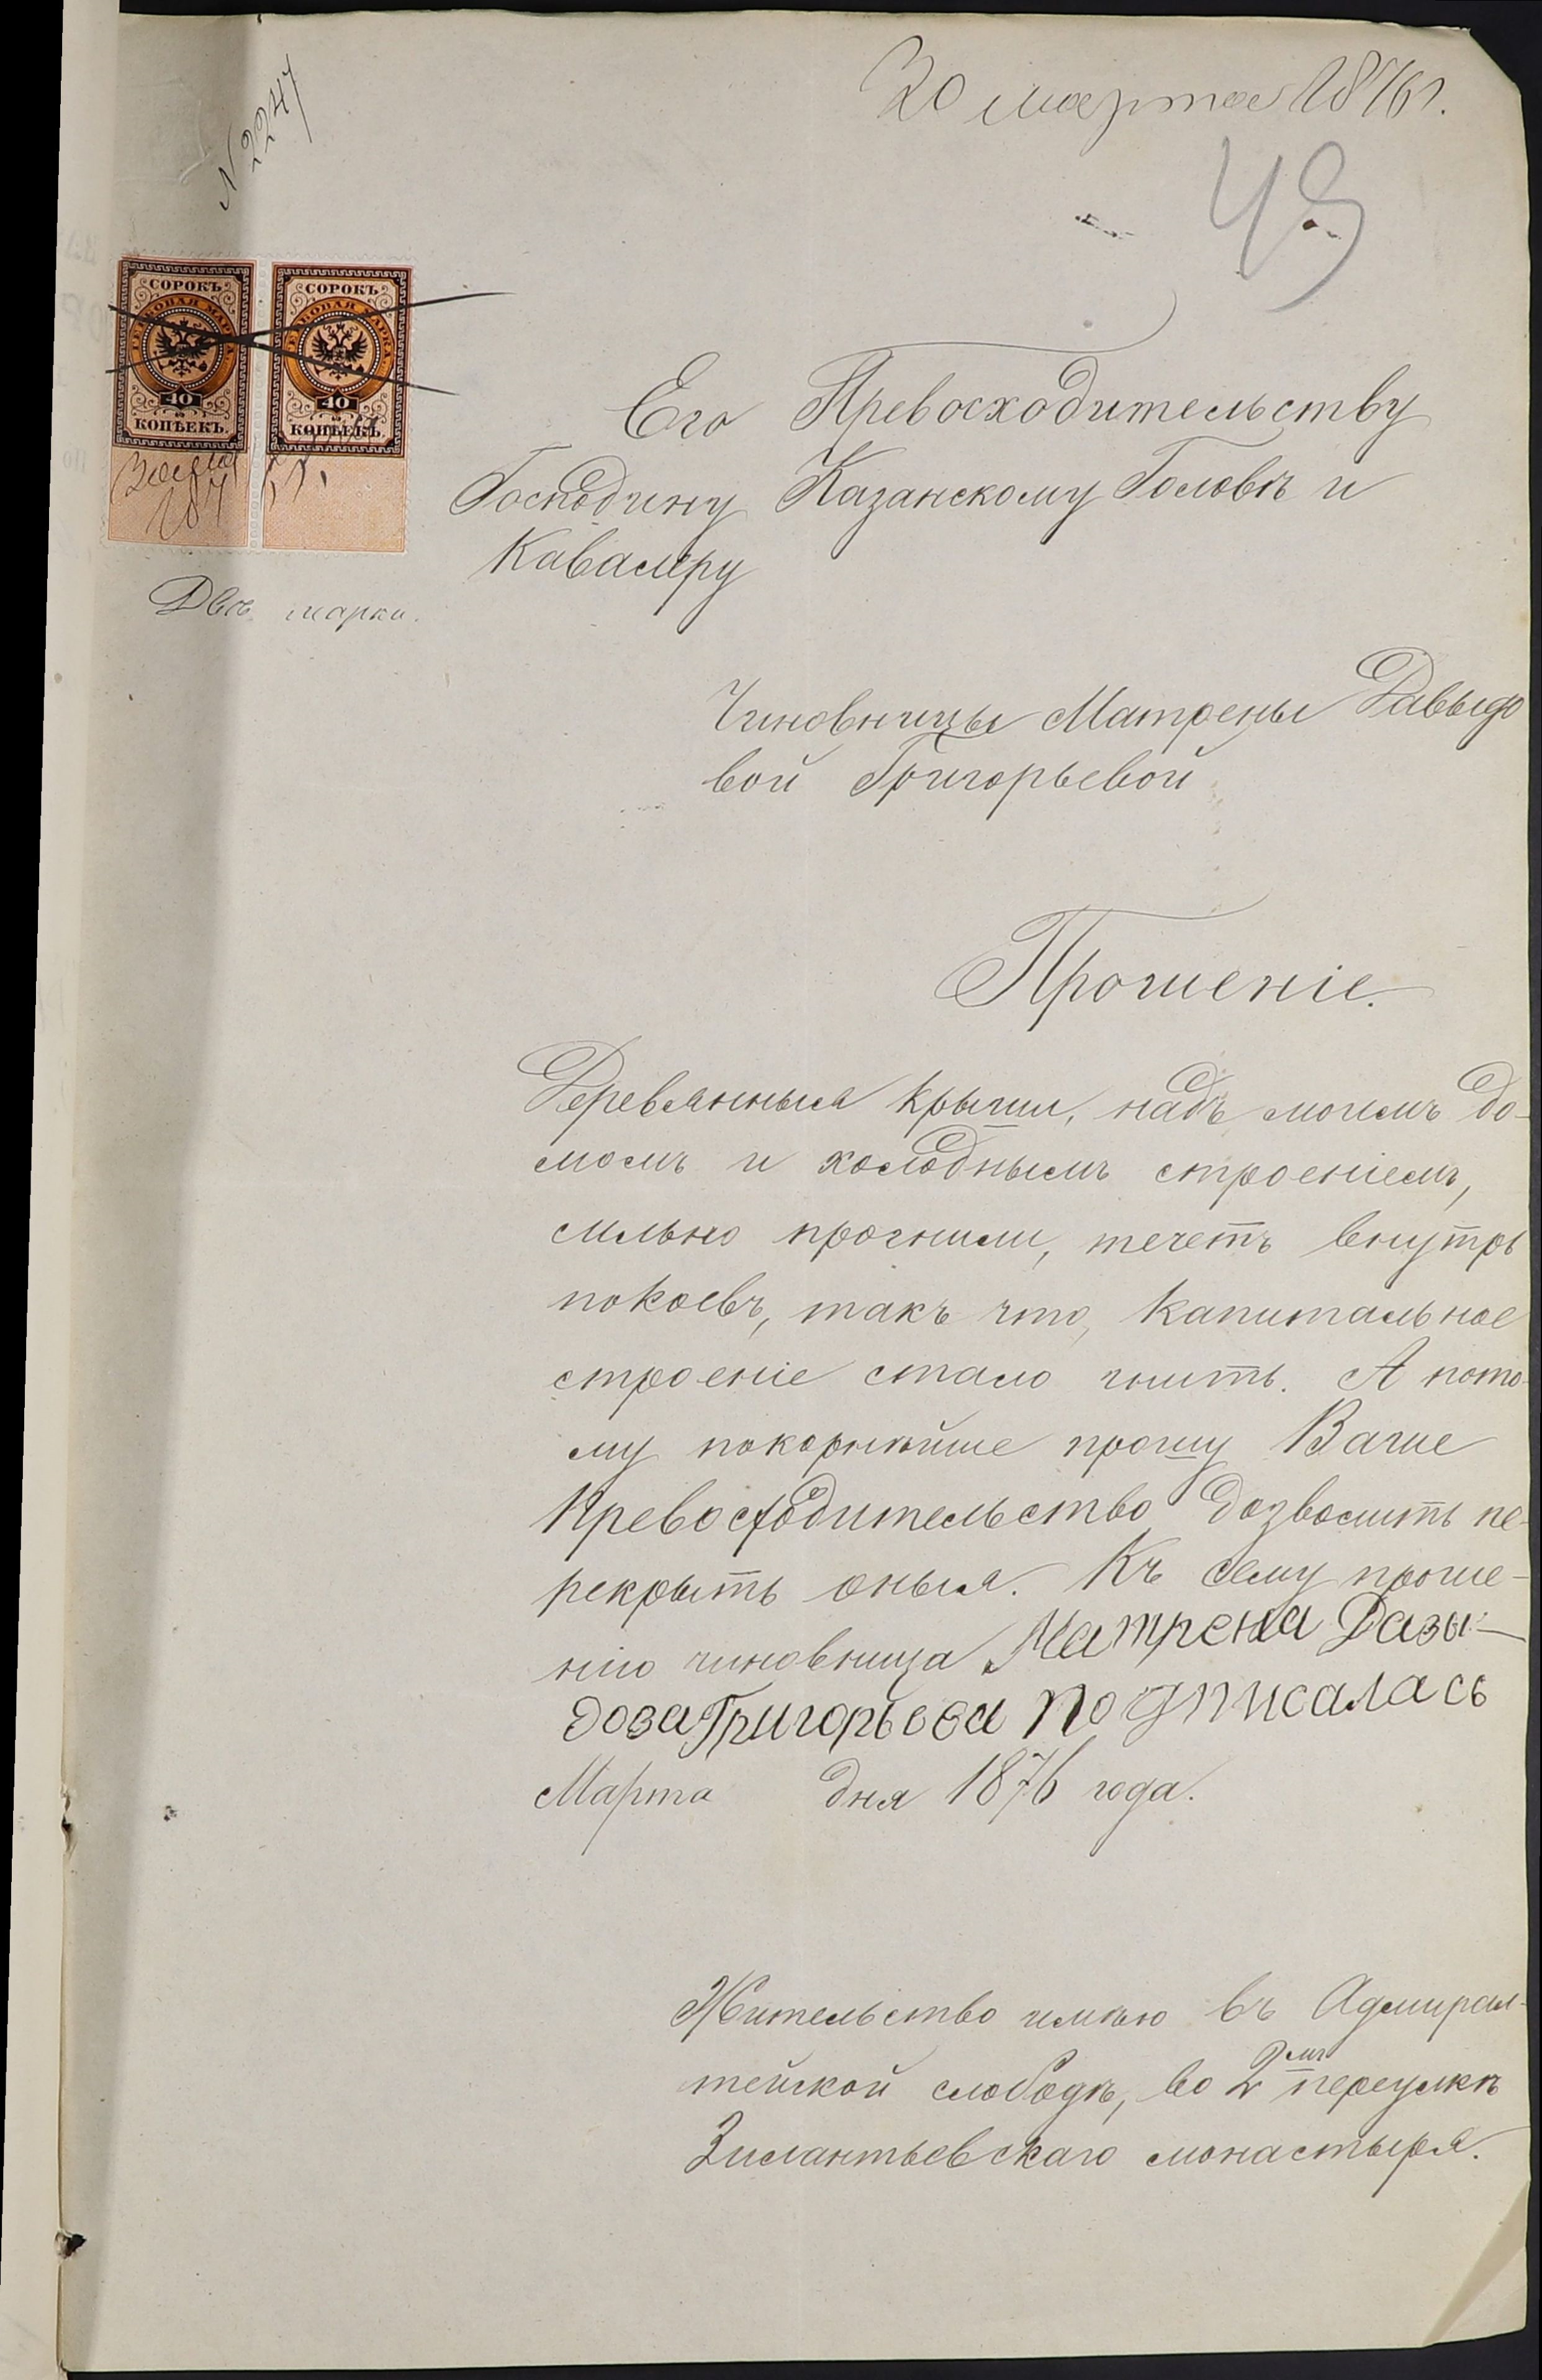 20 марта 1876 г.
N 2247
49
СОРОКЪ
ГЕРБОВАЯ МАРКА
40
КОПѢЕКЪ.
СОРОКЪ
ГЕРБОВАЯ МАРКА
40
КОПѢЕКЪ.
187
Двѣ марки.
Его Превосходительству
Господину Казанскому Головѣ и
Кавалеру
Чиновницы Матрены Давыдо
вой Григорьевой
Прошеніе.
Деревянныя крыши, надъ моимъ до-
момъ и холоднымъ строеніемъ,
сильно прогнили, течетъ внутрь
покоевъ, такъ что, капитальное
строеніе стало гнить. А пото-
му покорнѣйше прошу Ваше
Превосходительство дозволить пе-
рекрыть оныя. Къ сему проше-
нію чиновница Матрена Давы-
дова Григорьева подписалась
Марта дня 1876 года.
Жительство имѣю въ Адмирал-
тейской слободѣ, во 2мъ переулкѣ
Зилантьевскаго монастыря.